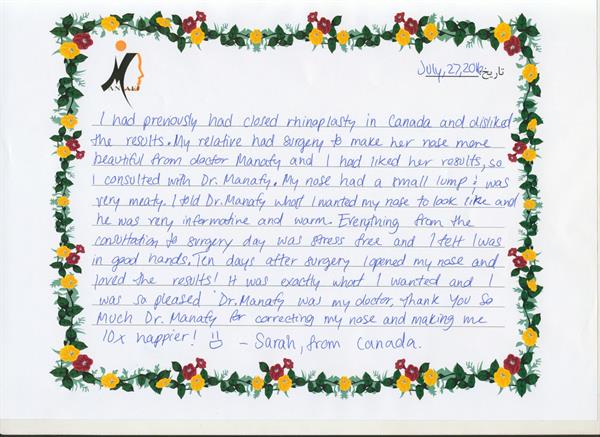 July, 27, 2016 تاریخ
MANAFI
I had previously had closed rhinoplasty in Canada and disliked
the results. My relative had surgery to make her nose more
beautiful from doctor Manafy and I had liked her results, so
I consulted with Dr. Manafy. My nose had a small lump & was
very meaty. I told Dr. Manafy what I wanted my nose to look like and
he was very informative and warm. Everything from the
consultation to surgery day was stress free and I felt I was
in good hands. Ten days after surgery I opened my nose and
loved the results! It was exactly what I wanted and I
was so pleased Dr. Manafy was my doctor. Thank you so
Much Dr. Manafy for correcting my nose and making me
10x happier! - Sarah, from Canada.